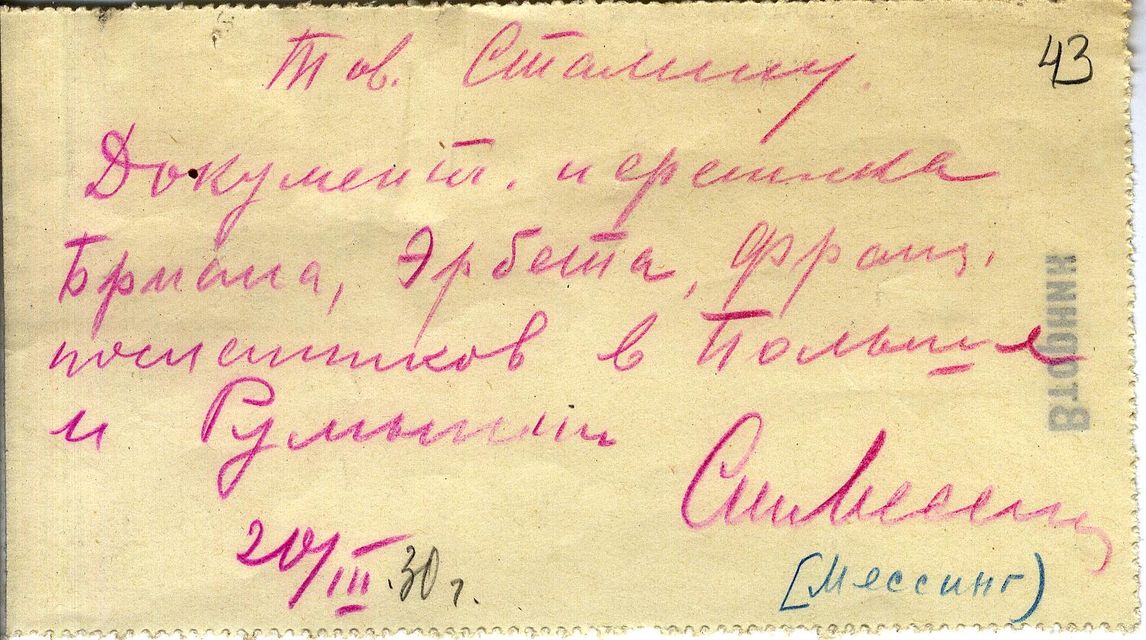 43
Тов. Сталину.
Документ. переписка
Бриана, Эрбета, франц.
посланников в Польше
и Румынии
Мессинг
20/III.30 г.
(Мессинг)
Вторник